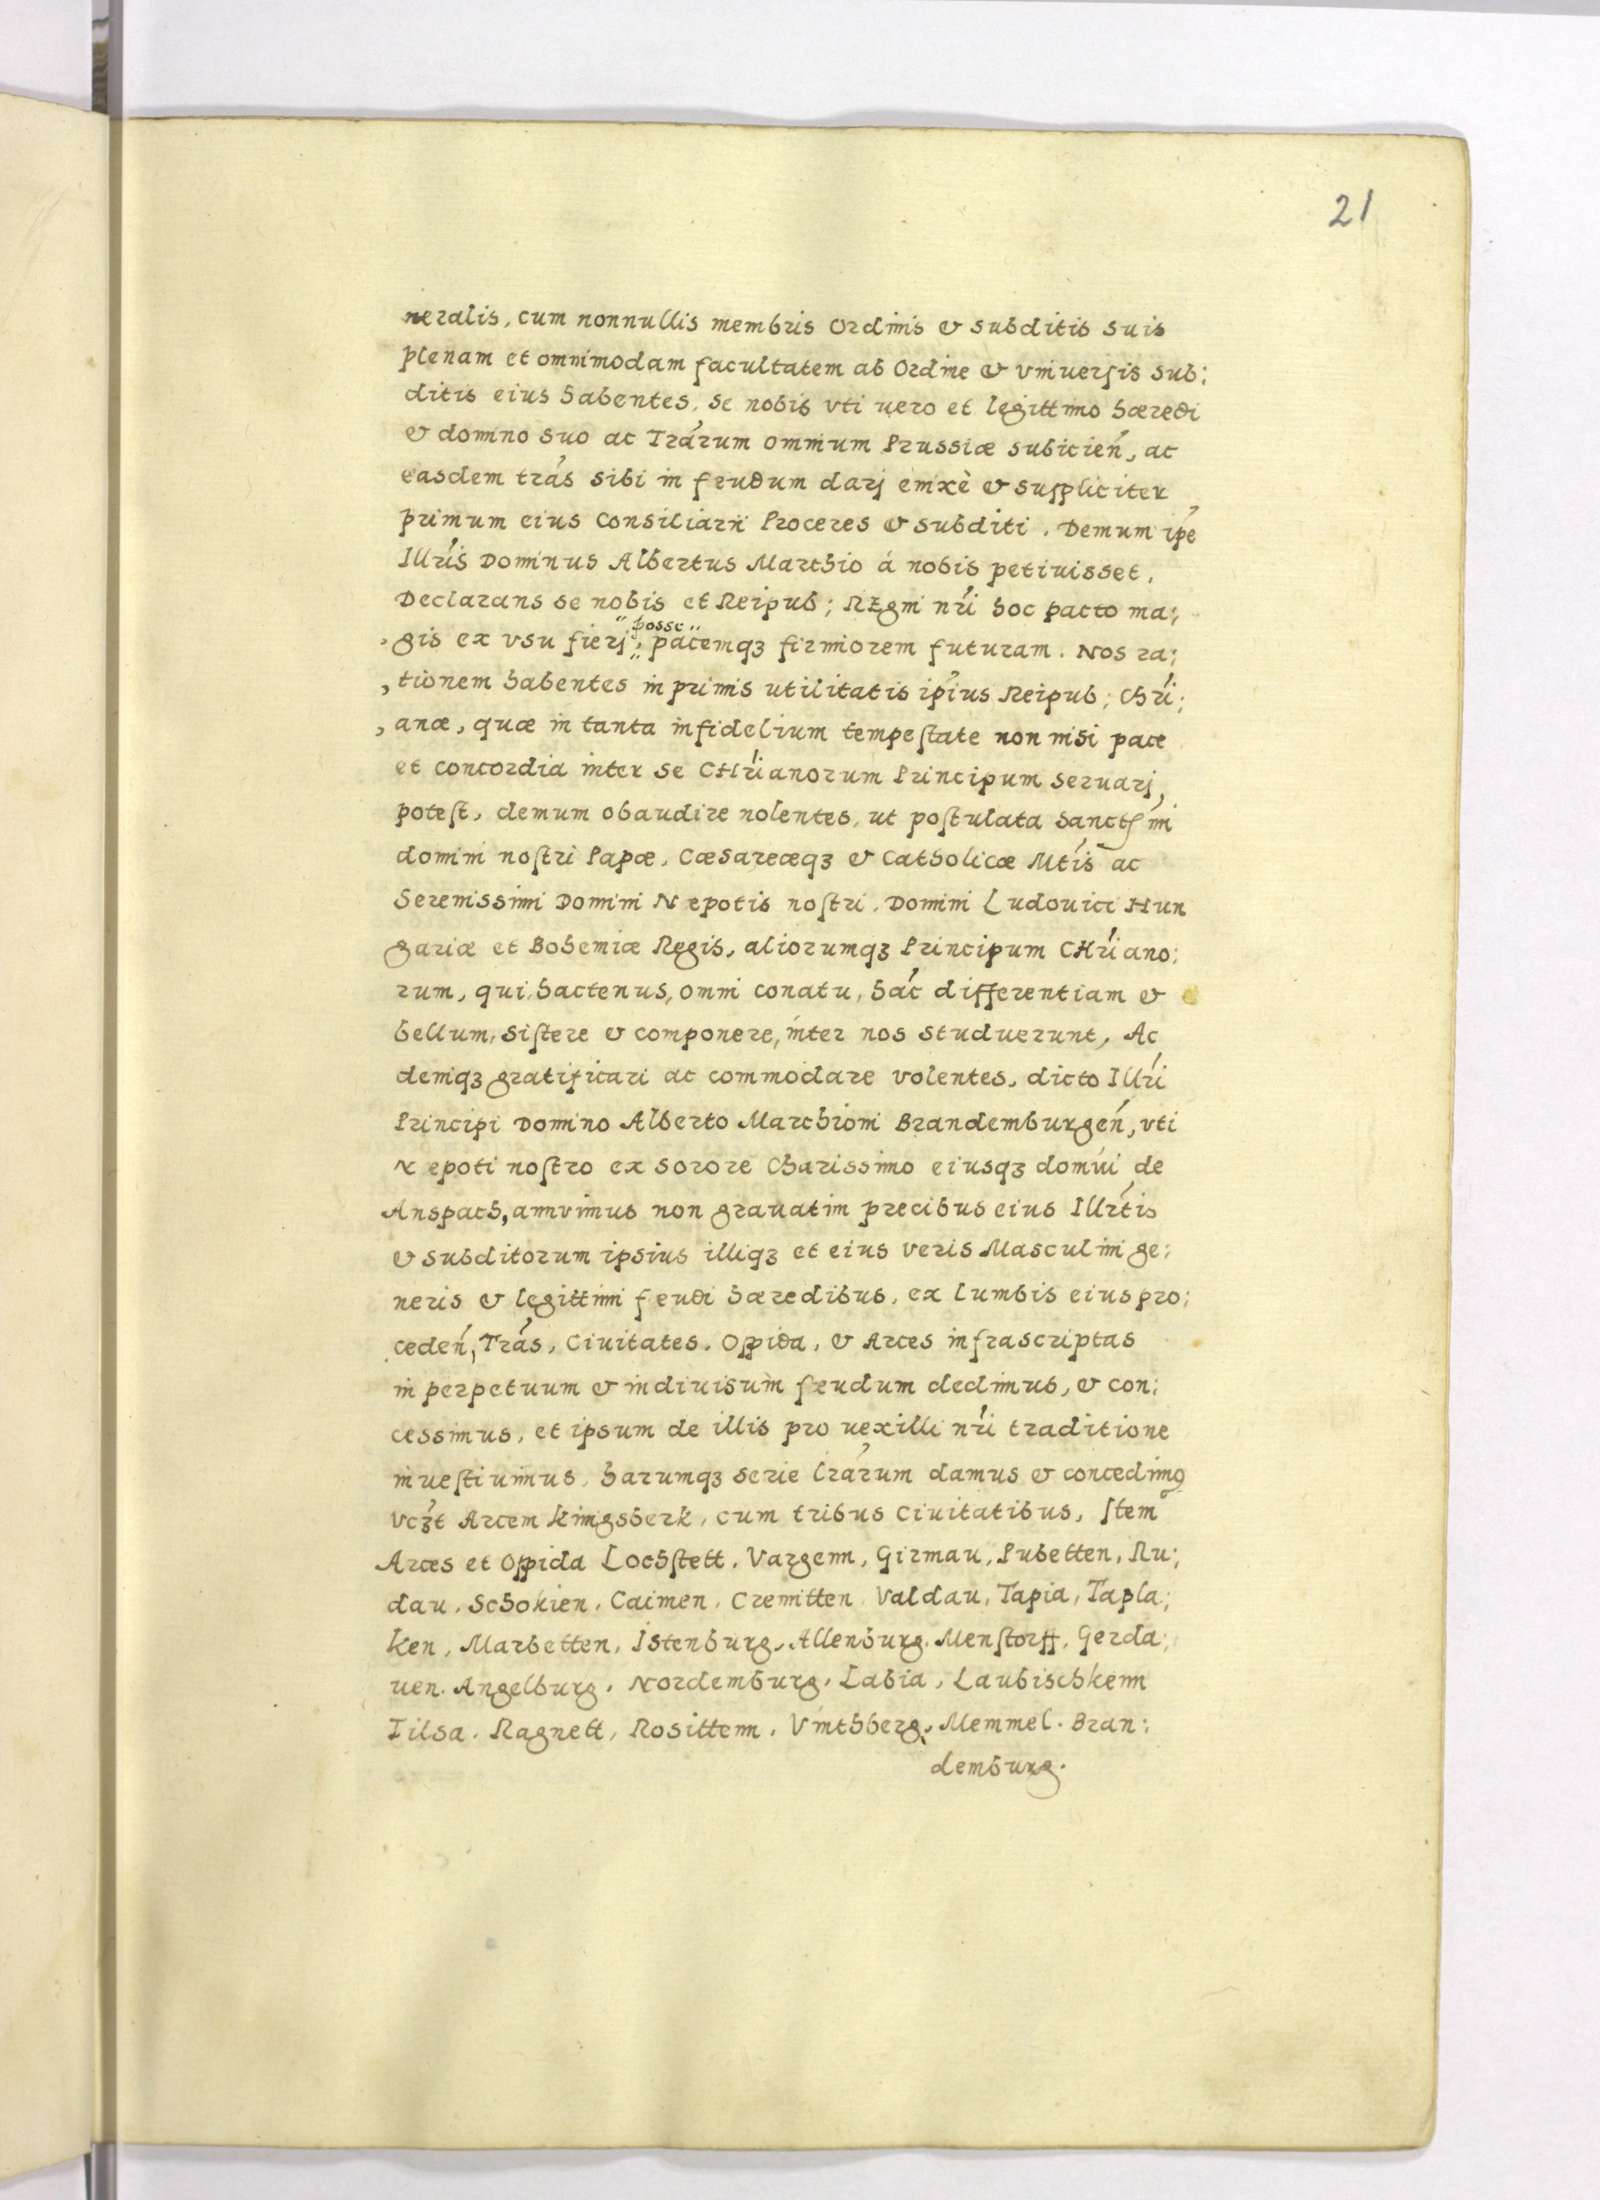 21
neralis, cum nonnullis membris Ordinis & subditis suis
plenam et omnimodam facultatem ab Ordine & vniuersis sub:
ditis eius habentes, se nobis vti uero et legittimo hæredi
& domino suo ac Trárum omnium Prussiæ subicień, ac
easdem trás sibi in feudum darj enixè & suppliciter
primum eius Consiliarii Proceres & subditi. Demum ipé
Illrís Dominus Albertus Marchio á nobis petiuisset,
Declarans se nobis et Reipub; REgni nrí hoc pacto ma:
posse
gis ex vsu fierj, pacemqꝫ firmiorem futuram. Nos ra:
tionem habentes in primis utilitatis ipíus Reipub; Chrí:
anæ, quæ in tanta infidelium tempestate non nisi pace
et concordia inter se CHríanorum Principum seruarj,
potest, demum obaudire nolentes, ut postulata sanctsmi
domini nostri Papæ, Cæsareæqꝫ & Catholicæ Mtís ac
Serenissimi Domini Nepotis nostri, Domini Ludouici Hun
gariæ et Bohemiæ Regis, aliorumqꝫ Principum CHríano:
rum, qui hactenus, omni conatu, hác differentiam &
bellum, sistere & componere, inter nos studuerunt, Ac
demiqꝫ gratificari ac commodare volentes, dicto Illrí
Principi Domino Alberto Marchioni Brandemburgeń, vti
Nepoti nostro ex sorore Charissimo eiusqꝫ domui de
Anspach, annuimus non grauatim precibus eius Illrtís
& subditorum ipsius illiqꝫ et eius veris Masculini ge:
neris & legittimi feudi hæredibus, ex lumbis eius pro:
cedeń, Trás, Ciuitates, Oppida, & Arces infrascriptas
in perpetuum & indiuisum feudum dedimus, & con:
cessimus, et ipsum de illis pro uexilli nrí traditione
inuestiuimus, harumqꝫ serie lrárum damus & concedimꝰ
vcꝫt Arcem Kingsberk, cum tribus Ciuitatibus, Item
Arces et Oppida Lochstett, Vargenn, Girmau, Pubetten, Ru:
dau, Schokien, Caimen, Cremitten, Valdau, Tapia, Tapla:
ken, Marbetten, Istenburg, Allenburg, Menstorff, Gerda:
uen, Angelburg, Nordemburg, Labia, Laubischkenn
Tilsa, Ragnett, Rosittenn, Vinthberg, Memmel, Bran:
demburg.